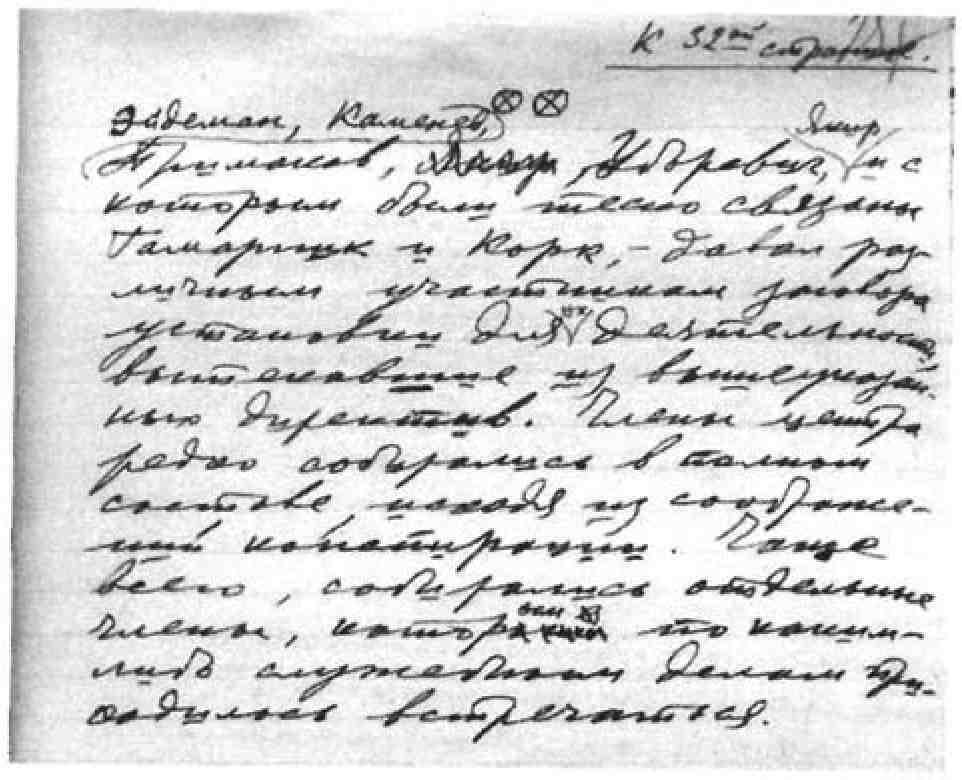 К 32ой странице.
Эйдеман, Каменев,
Якир
Примаков, Уборевич, и с
которым были тесно связаны
Гамарник и Корк, - давал раз-
личным участникам заговора
их
установки для деятельности,
вытекавшие из вышеуказан-
ных директив. Члены центра
редко собирались в полном
составе, исходя из соображе-
ний конспирации. Чаще
всего, собирались отдельные
члены, которым по каким-
либо служебным делам при-
ходилось встречаться.